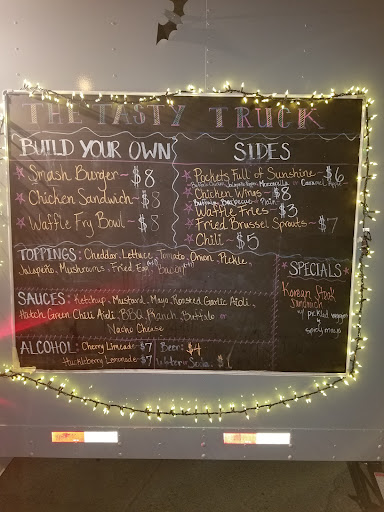 THE TASTY TRUCK
BUILD YOUR OWN
Smash Burger ~ $8
Chicken Sandwich ~ $8
Waffle Fry Bowl ~ $8
SIDES
Pockets Full of Sunshine ~ $6
Chicken Wings ~ $8
Buffalo, Barbecue, Plain
Waffle Fries ~ $3
Fried Brussel Sprouts ~ $7
Chili ~ $5
TOPPINGS: Cheddar, Lettuce, Tomato, Onion, Pickle,
Jalapeño, Mushrooms, Fried Egg, Bacon
SAUCES: Ketchup, Mustard, Mayo, Roasted Garlic Aioli,
Hatch Green Chili Aioli, BBQ, Ranch, Buffalo or
Nacho Cheese
ALCOHOL: Cherry Limeade ~ $7 Beer: $4
Huckleberry Lemonade ~ $7 Water/Soda: $1
SPECIALS
Korean Steak
Sandwich
w/ pickled
spicy mayo